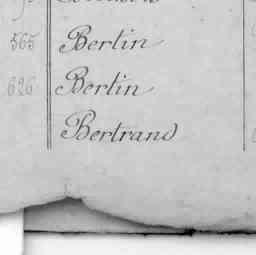 565 Bertin
626 Bertin
Bertrand